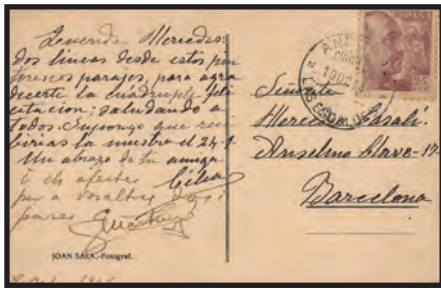 Querida Mercedes:
Dos lineas desde estos pin
torescos parajes, para agra
decerte la cuádruple feli
citacion; saludando a
todos. Supongo que reci
birias la nuestra el 24.
Un abrazo de tu amiga
Célia
I els afectes
per a vosaltres dos i
pares
JOAN SALA.-Fotograf.
ESPAÑA
25
LES ESCALDES
Señorita
Mercedes Casalí.
Anselmo Clavé-17
Barcelona